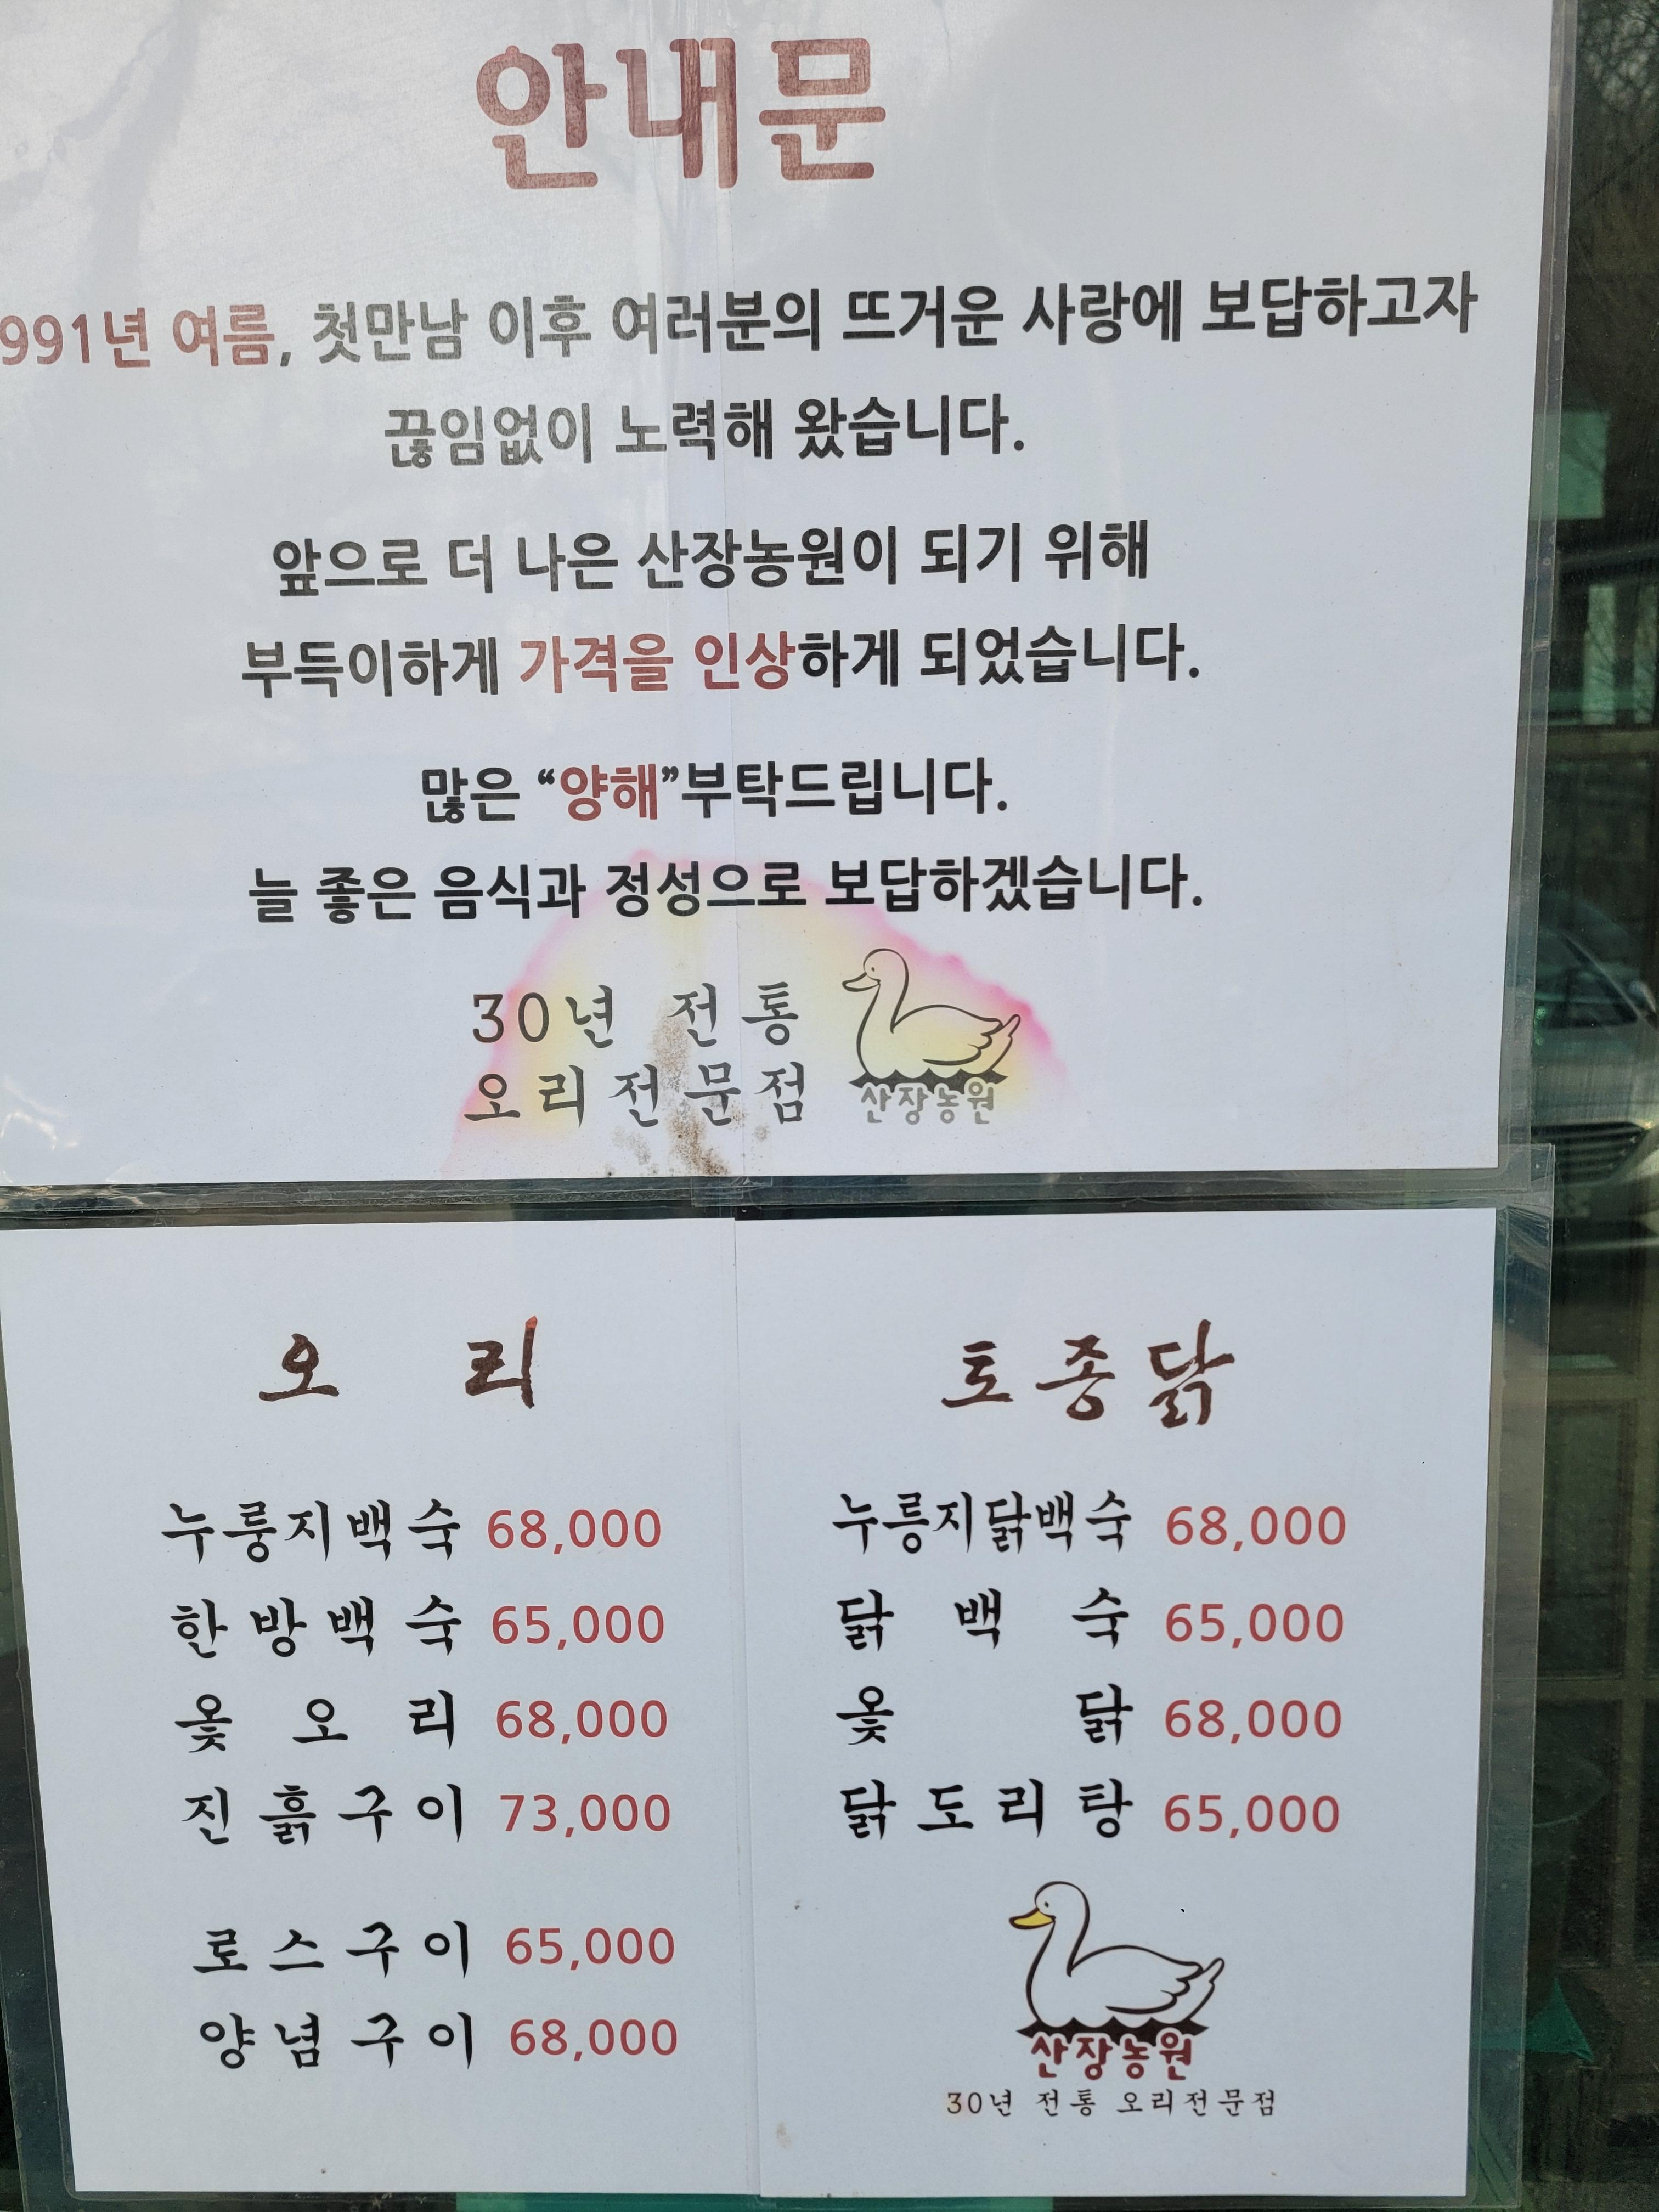 안내문
991년 여름, 첫만남 이후 여러분의 뜨거운 사랑에 보답하고자
끊임없이 노력해 왔습니다.
앞으로 더 나은 산장농원이 되기 위해
부득이하게 가격을 인상하게 되었습니다.
많은 “양해”부탁드립니다.
늘 좋은 음식과 정성으로 보답하겠습니다.
30년 전통
오리전문점
산장농원
오리
누룽지백숙 68,000
한방백숙 65,000
옻오리 68,000
진흙구이 73,000
로스구이 65,000
양념구이 68,000
토종닭
누릉지닭백숙 68,000
닭백숙 65,000
옻닭 68,000
닭도리탕 65,000
산장농원
30년 전통 오리전문점